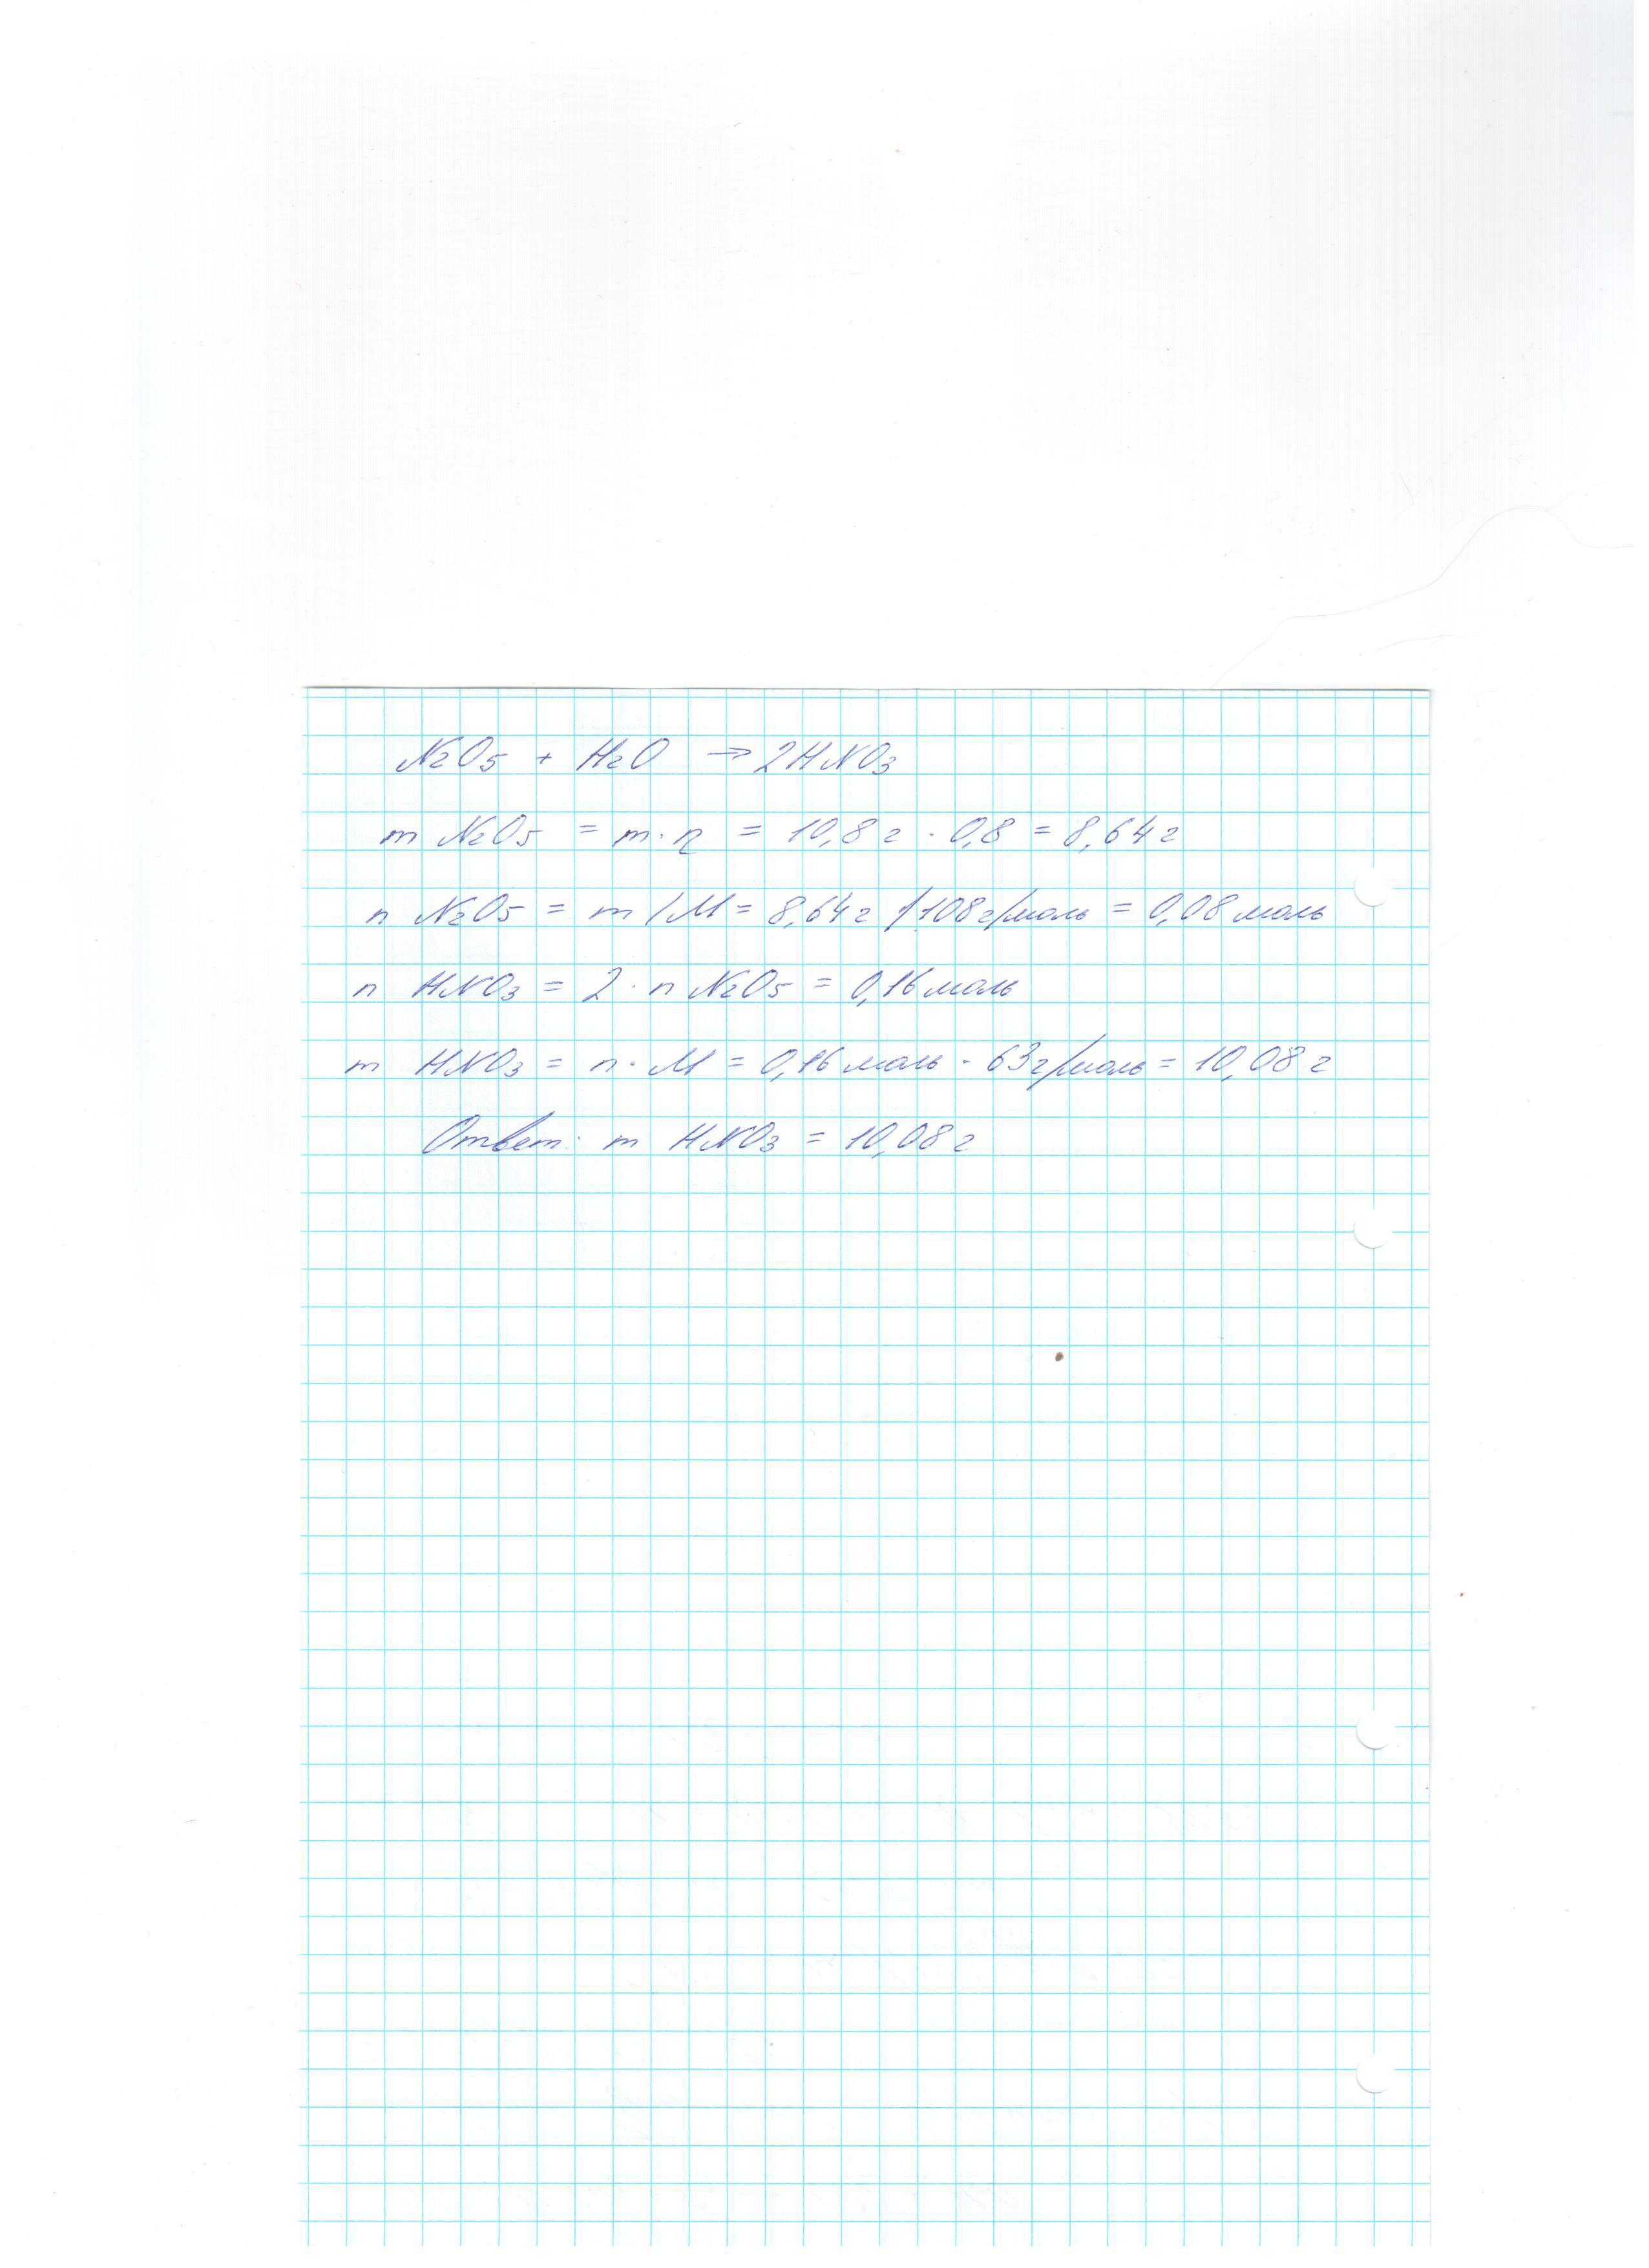 N₂O₅ + H₂O → 2HNO₃
m N₂O₅ = m · η = 10,8 г · 0,8 = 8,64 г
n N₂O₅ = m / M = 8,64 г / 108 г/моль = 0,08 моль
n HNO₃ = 2 · n N₂O₅ = 0,16 моль
m HNO₃ = n · M = 0,16 моль · 63 г/моль = 10,08 г
Ответ: m HNO₃ = 10,08 г